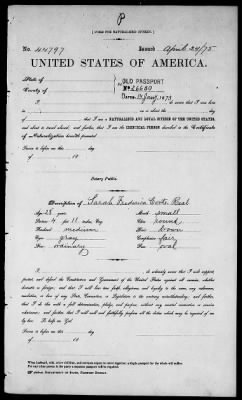 P
[FORM FOR NATURALIZED CITIZEN.]
No. 44797 Issued April 24/75
UNITED STATES OF AMERICA.
State of
County of
OLD PASSPORT
No. 26680
I, do swear that I was born
in , on or about the day
of ; that I am a NATURALIZED AND LOYAL CITIZEN OF THE UNITED STATES,
and about to travel abroad; and further, that I am the IDENTICAL PERSON described in the Certificate
of Naturalization herewith presented.
Sworn to before me this day
of 18
Notary Public.
Description of Sarah Frederica Cortz Real
Age: 28 years Mouth: small
Stature: 4 feet 11 inches, Eng. Chin: round
Forehead: medium Hair: brown
Eyes: gray Complexion: fair
Nose: ordinary Face: oval
I, do solemnly swear that I will support,
protect, and defend the Constitution and Government of the United States against all enemies, whether
domestic or foreign; and that I will bear true faith, allegiance, and loyalty to the same, any ordinance,
resolution, or law of any State, Convention, or Legislature to the contrary notwithstanding; and further,
that I do this with a full determination, pledge, and purpose, without any mental reservation or evasion
whatsoever; and further, that I will well and faithfully perform all the duties which may be required of me
by law. So help me God.
Sworn to before me this day
of 18